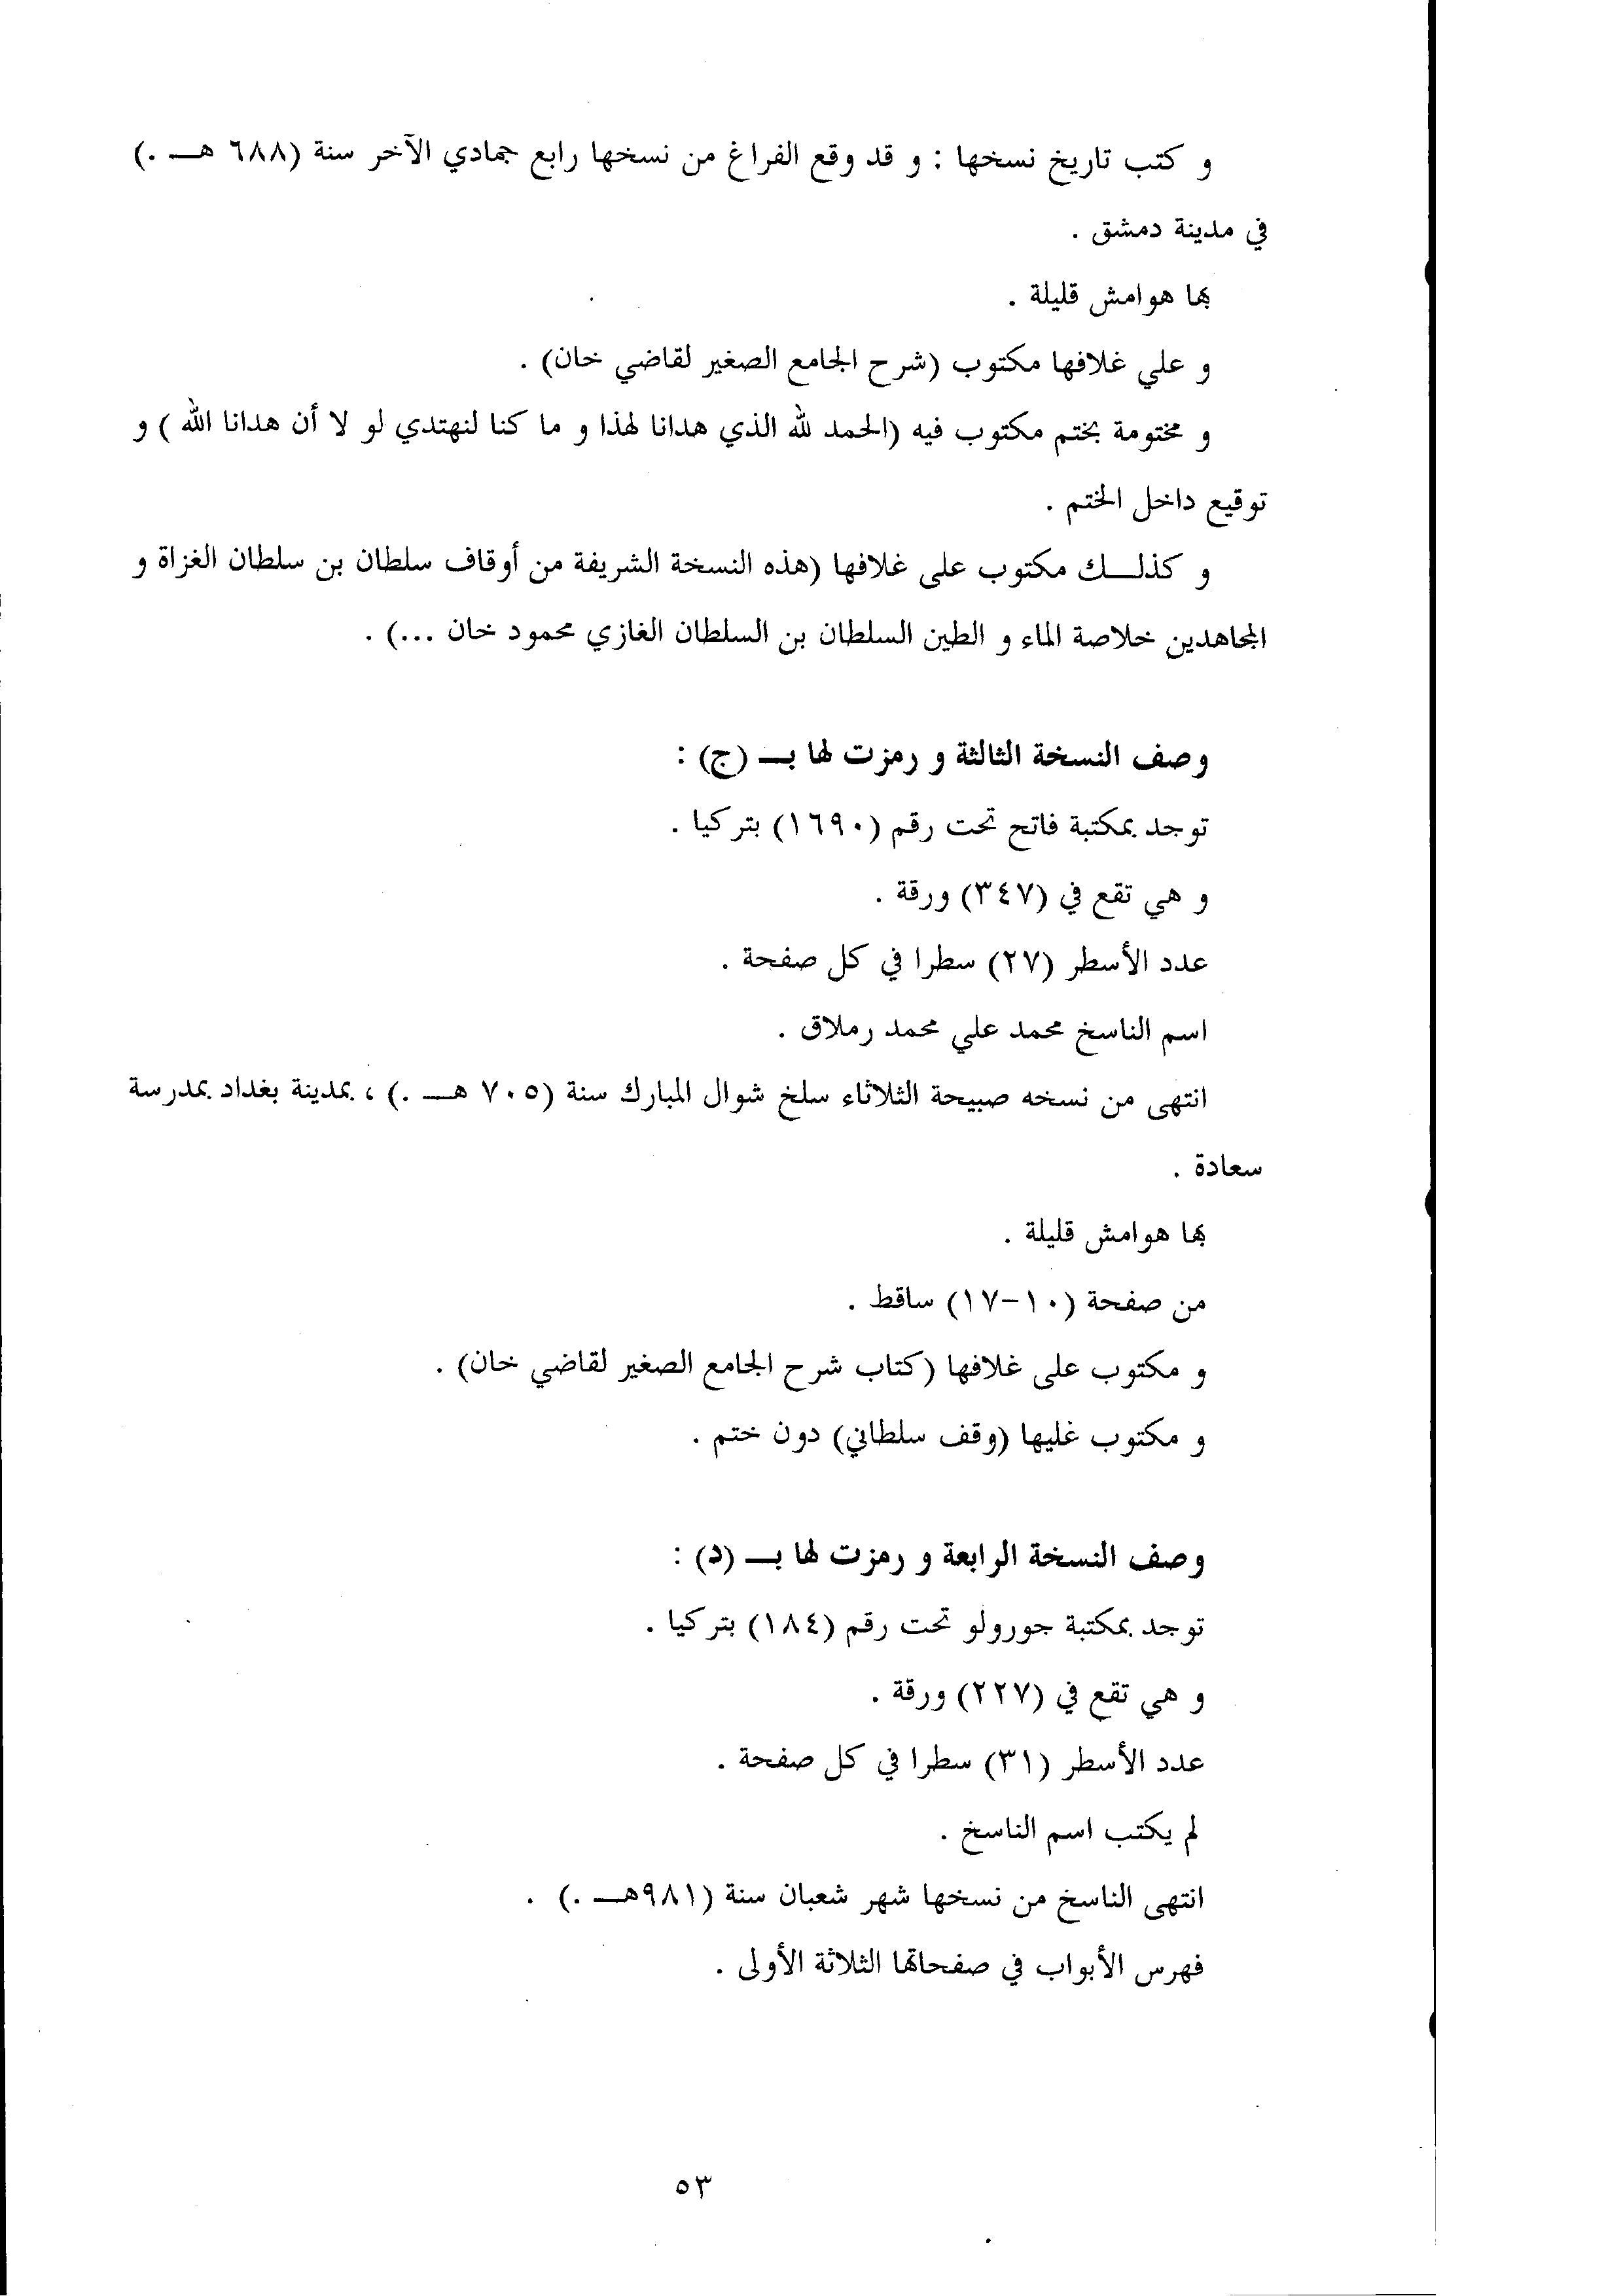 و كتب تاريخ نسخها : و قد وقع الفراغ من نسخها رابع جمادي الآخر سنة (٦٨٨ هـ .)
في مدينة دمشق .
بها هوامش قليلة .
و علي غلافها مكتوب (شرح الجامع الصغير لقاضي خان) .
و مختومة بختم مكتوب فيه (الحمد لله الذي هدانا لهذا و ما كنا لنهتدي لو لا أن هدانا الله ) و
توقيع داخل الختم .
و كذلك مكتوب على غلافها (هذه النسخة الشريفة من أوقاف سلطان بن سلطان الغزاة و
المجاهدين خلاصة الماء و الطين السلطان بن السلطان الغازي محمود خان ...) .
وصف النسخة الثالثة و رمزت لها بـ (ج) :
توجد بمكتبة فاتح تحت رقم (١٦٩٠) بتركيا .
و هي تقع في (٣٤٧) ورقة .
عدد الأسطر (٢٧) سطرا في كل صفحة .
اسم الناسخ محمد علي محمد رملاق .
انتهى من نسخه صبيحة الثلاثاء سلخ شوال المبارك سنة (٧٠٥ هـ .) ، بمدينة بغداد بمدرسة
سعادة .
بها هوامش قليلة .
من صفحة (١٠-١٧) ساقط .
و مكتوب على غلافها (كتاب شرح الجامع الصغير لقاضي خان) .
و مكتوب غليها (وقف سلطاني) دون ختم .
وصف النسخة الرابعة و رمزت لها بـ (د) :
توجد بمكتبة جورولو تحت رقم (١٨٤) بتركيا .
و هي تقع في (٢٢٧) ورقة .
عدد الأسطر (٣١) سطرا في كل صفحة .
لم يكتب اسم الناسخ .
انتهى الناسخ من نسخها شهر شعبان سنة (٩٨١هـ .) .
فهرس الأبواب في صفحاتها الثلاثة الأولى .
٥٣